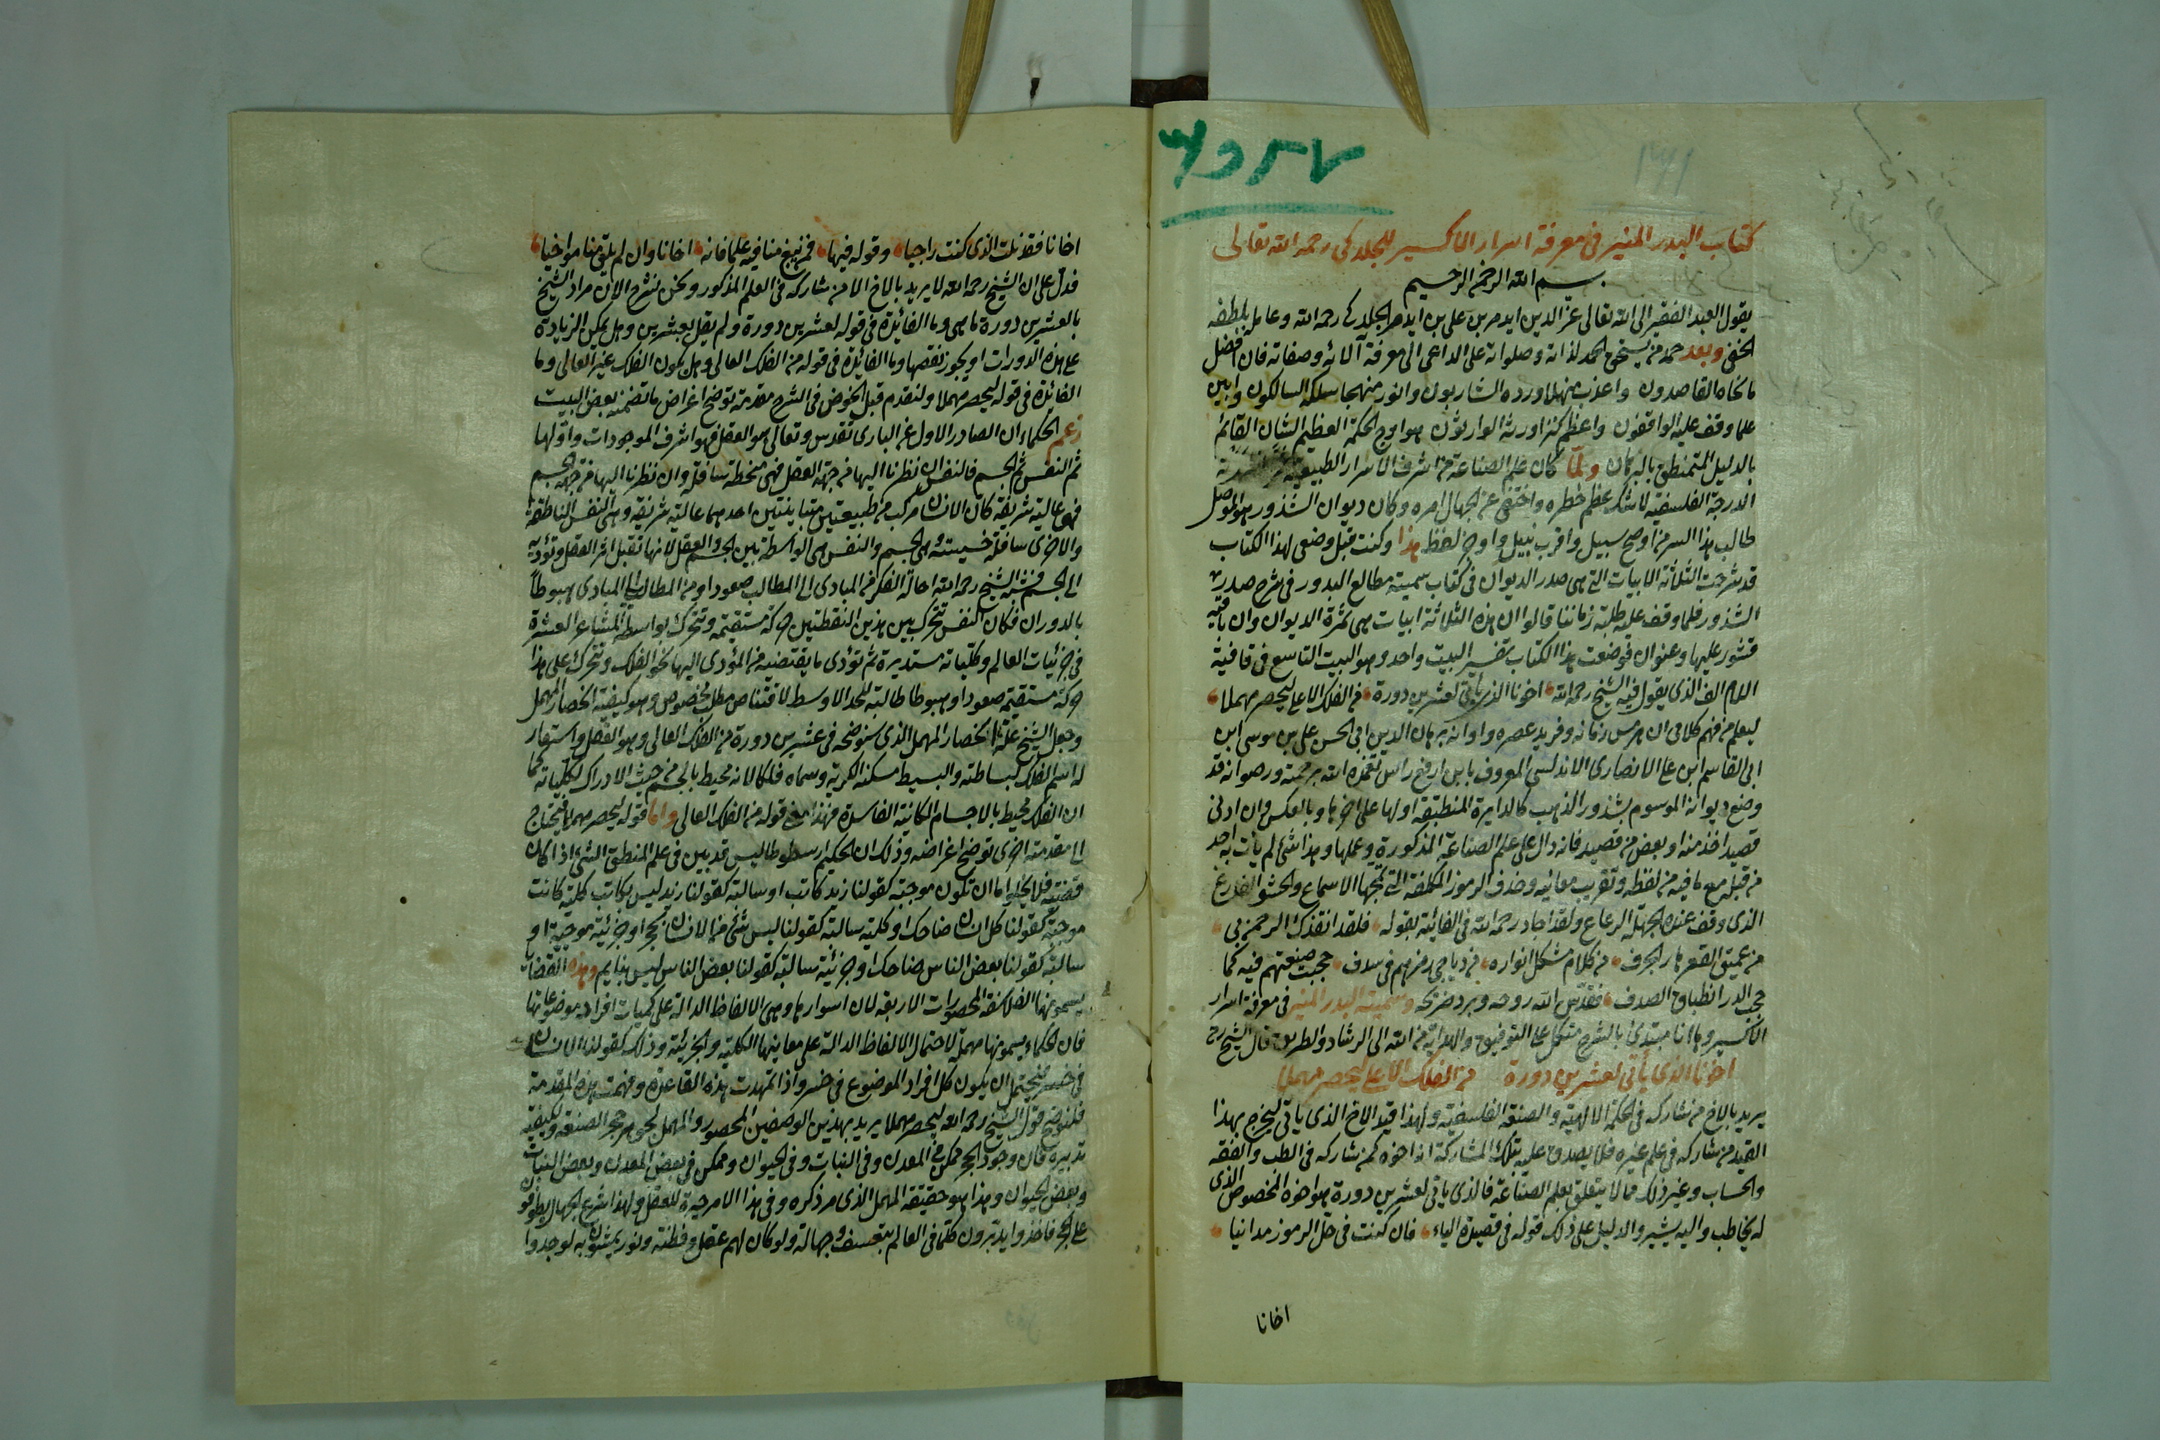 كتاب البدر المنير فى معرفة اسرار الاكسير للجلدكى رحمه الله تعالى
بسم الله الرحمن الرحيم
يقول العبد الفقير الى الله تعالى عز الدين ايدمر بن على بن ايدمر الجلدكى رحمه الله وعامله بلطفه
الخفى وبعد حمد من يستحق الحمد لذاته وصلواته على الداعى الى معرفة آلائه وصفاته فان افضل
ما نحاه القاصدون واعذب منهلا ورده الشاربون وانور منهجا سلكه السالكون وابين
علما وقف عليه الواقفون واعظم كنز اورثه الوارثون هو اوج الحكمة العظيم الشان القائم
بالدليل المتمنطق بالبرهان ولما كان علم الصناعة من اشرف الاسرار الطبيعية
الدرجة الفلسفية لا شك عظم خطره واختفى عن الجهال امره وكان ديوان الشذور هو الموصل
طالب هذا السر من اوضح سبيل واقرب نيل واوجز لفظ هذا وكنت قبل وضعى لهذا الكتاب
قد شرحت الثلاثة الابيات التى هى صدر الديوان فى كتاب سميته مطالع البدور فى شرح صدر
الشذور فلما وقف عليه طلبة زماننا قالوا ان هذه الثلاثة ابيات هى ثمرة الديوان وان باقيه
قشور عليها وعنوان فوضعت هذا الكتاب بتفسير البيت واحد وهو البيت التاسع فى قافية
اللام الف الذى يقول فيه الشيخ رحمه الله اخونا الذى يأتى لعشرين دورة من الفلك الاعلى ليحصر مهملا
ليعلم من فهم كلامى ان هرمس زمانه وفريد عصره واوانه برهان الدين ابى الحسن على بن موسى ابن
ابى القاسم ابن على الانصارى الاندلسى المعروف بابن ارفع راس تغمده الله برحمته ورضوانه قد
وضع ديوانه الموسوم بشذور الذهب كالدايرة المنطبقة اولها على اخرها وبالعكس وان ادنى
قصيد اخذ منه او بعض من قصيد فانه دال على علم الصناعة المذكورة وعملها وهذا شئ لم يأت به احد
من قبله مع ما فيه من لفظه وتقريب معانيه وحذف الرموز المكلفة التى تمجها الاسماع والحشو الفارغ
الذى وقف عنده الجهلة الرعاع ولقد اجاد رحمه الله فى الفائية بقوله فلقد انقذك الرحمن بى
من عميق القعر هار الجرف من كلام مشكل انواره من دياجى رمزهم فى سدف حجبت صنعتهم فيه كما
حجب الدر انطباق الصدف فقدس الله روحه وبرد ضريحه وسميته البدر المنير فى معرفة اسرار
الاكسير وها انا مبتدئ بالشرح متوكل على التوفيق والهداية من الله الى الرشاد والطريق قال الشيخ رح
اخونا الذى يأتى لعشرين دورة من الفلك الاعلى ليحصر مهملا
يريد بالاخ من شاركه فى الحكمة الالهية والصنعة الفلسفية ولهذا قيد الاخ الذى يأتى ليخرج بهذا
القيد من شاركه فى علم غيره فلا يصدق عليه بتلك المشاركة انه اخوه كمن شاركه فى الطب والفقه
والحساب وغير ذلك مما لا يتعلق بعلم الصناعة فالذى يأتى لعشرين دورة هو اخوه المخصوص الذى
له يخاطب واليه يشير والدليل على ذلك قوله فى قصيدة الياء فان كنت فى حل الرموز مدانيا
اخانا
اخانا فقد نلت الذى كنت راجيا وقوله فيها فمن نبغ منا فيه علما فانه اخانا وان لم يلق منا مواخيا
فدل على ان الشيخ رحمه الله لا يريد بالاخ الا من شاركه فى العلم المذكور ونحن نشرح الان مراد الشيخ
بالعشرين دورة ما هى وما الفائدة فى قوله لعشرين دورة ولم يقل بعشرين وهل يمكن الزيادة
على هذه الدورات او يجوز نقصها وما الفائدة فى قوله من الفلك العالى وهل يكون الفلك غير العالى وما
الفائدة فى قوله ليحصر مهملا ولنقدم قبل الخوض فى الشرح مقدمة توضح اغراض ما تضمنه بعض البيت
زعم الحكماء ان الصادر الاول عن البارى تقدس وتعالى هو العقل فهو اشرف الموجودات واولها
ثم النفس ثم الجسم فالنفس ان نظرنا اليها من جهة العقل فهى منحطة سافلة وان نظرنا اليها من جهة الجسم
فهى عالية شريفة كان الانسان مركب من طبيعتين متباينتين احدهما عالية شريفة وهى النفس الناطقة
والاخرى سافلة خسيسة هى الجسم والنفس هى الواسطة بين الجسم والعقل لانها تقبل اثر العقل وتؤديه
الى الجسم الشيخ رحمه الله احالة الفكر من المبادى الى المطالب صعودا ومن المطالب الى المبادى هبوطا
بالدوران فكان النفس تتحرك بين هذين النقطتين حركة مستقيمة وتتحرك بواسطة المشاعر العشرة
فى جزئيات العالم وكلياته مستديرة ثم تؤدى ما يقتضيه من المؤدى اليها نحو الفلك وتتحرك على هذا
حركة مستقيمة صعودا وهبوطا طالبة للحد الاوسط لاقتناص مطلب مخصوص وهو كيفية انحصار المهمل
وجعل الشيخ علة انحصار المهمل الذى سنوضحه فى عشرين دورة من الفلك العالى وهو العقل واستعار
له اسم الفلك لبساطته والبسيط مسكنه الكرية وسماه فلكا لانه محيط بالجسم من حيث الادراك لكلياته كما
ان الفلك محيط بالاجسام الكائنة الفاسدة فهذا معنى قوله من الفلك العالى واما قوله ليحصر مهملا فيحتاج
الى مقدمة اخرى توضح اغراضه وذلك ان الحكيم ارسطوطاليس قد بين فى علم المنطق الشئ اذا كان
قضية فلا يخلوا اما ان تكون موجبة كقولنا زيد كاتب او سالبة كقولنا زيد ليس بكاتب كلية كانت
موجبة كقولنا كل انسان ضاحك او كلية سالبة كقولنا ليس شئ من الانسان بحجر او جزئية موجبة او
سالبة كقولنا بعض الناس ضاحك او جزئية سالبة كقولنا بعض الناس ليس بنايم وهذه القضايا
يسمونها الفلاسفة المحصورات الاربعة لان اسوارها وهى الالفاظ الدالة على كميات افراد موضوعاتها
فان الحكماء يسمونها مهملة لاحتمال الالفاظ الدالة على معاينها الكلية والجزئية وذلك كقولنا الانسان
فى خسر فيحتمل ان يكون كل افراد الموضوع فى خسر واذا تمهدت هذه القاعدة وفهمت هذه المقدمة
فلنوضح قول الشيخ رحمه الله ليحصر مهملا يريد بهذين الوصفين المحصور والمهمل لجوهر حجر الصنعة وكيفية
تدبيره فان وجود الحجر ممكن فى المعدن وفى النبات وفى الحيوان وممكن فى بعض المعدن وبعض النبات
وبعض الحيوان وهذا هو حقيقة المهمل الذى مر ذكره وفى هذا الامر حيرة للعقل ولهذا شرع الجهال
على الحجر فاخذوا يدبرون كلما فى العالم بتعسف وجهالة ولو كان لهم عقل وفطنة ونور يمشون به لوجدوا